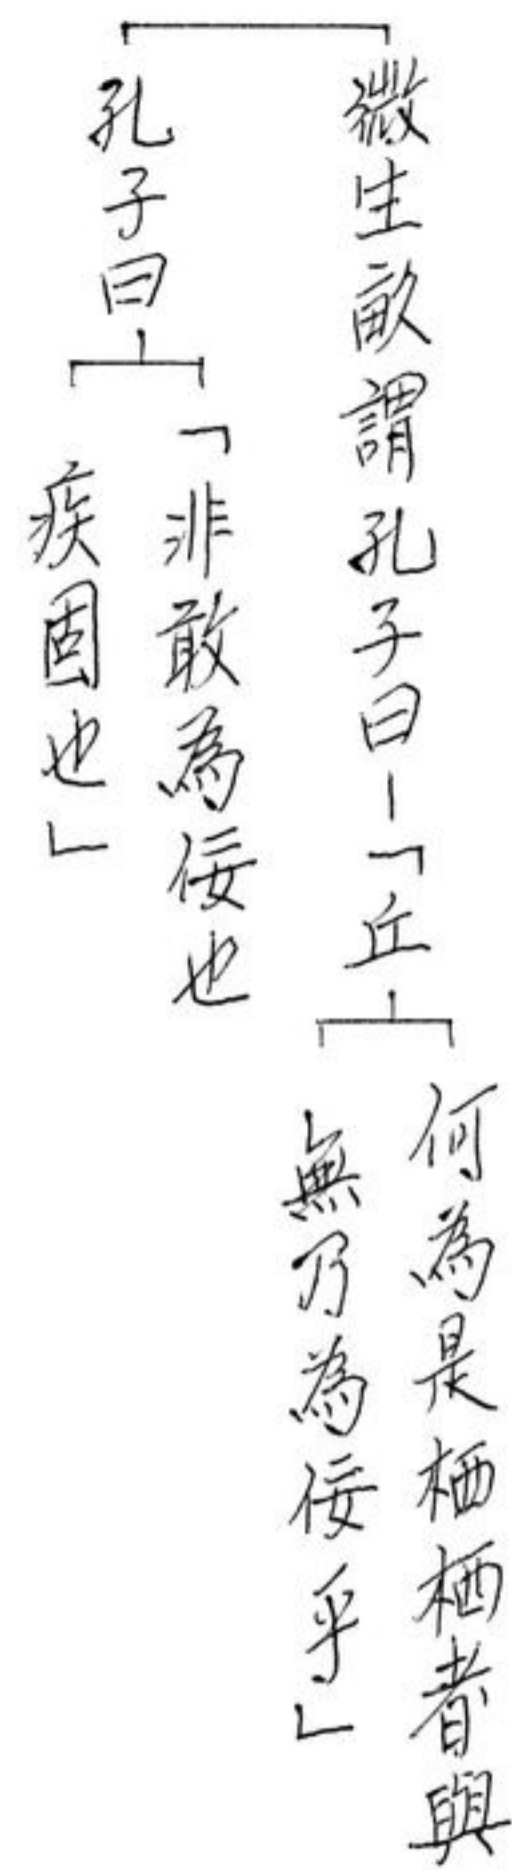 微生畝謂孔子曰「丘
何為是栖栖者與
無乃為佞乎」
孔子曰
「非敢為佞也
疾固也」